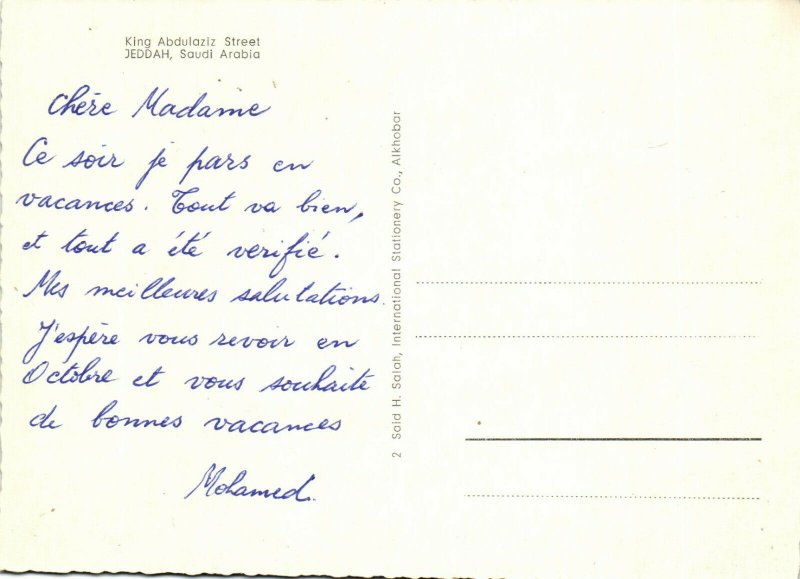 King Abdulaziz Street
JEDDAH, Saudi Arabia
Chère Madame
Ce soir je pars en
vacances. Tout va bien,
et tout a été verifié.
Mes meilleures salutations.
J'espère vous revoir en
Octobre et vous souhaite
de bonnes vacances
Mohamed.
2 Said H. Salah, International Stationery Co., Alkhobar